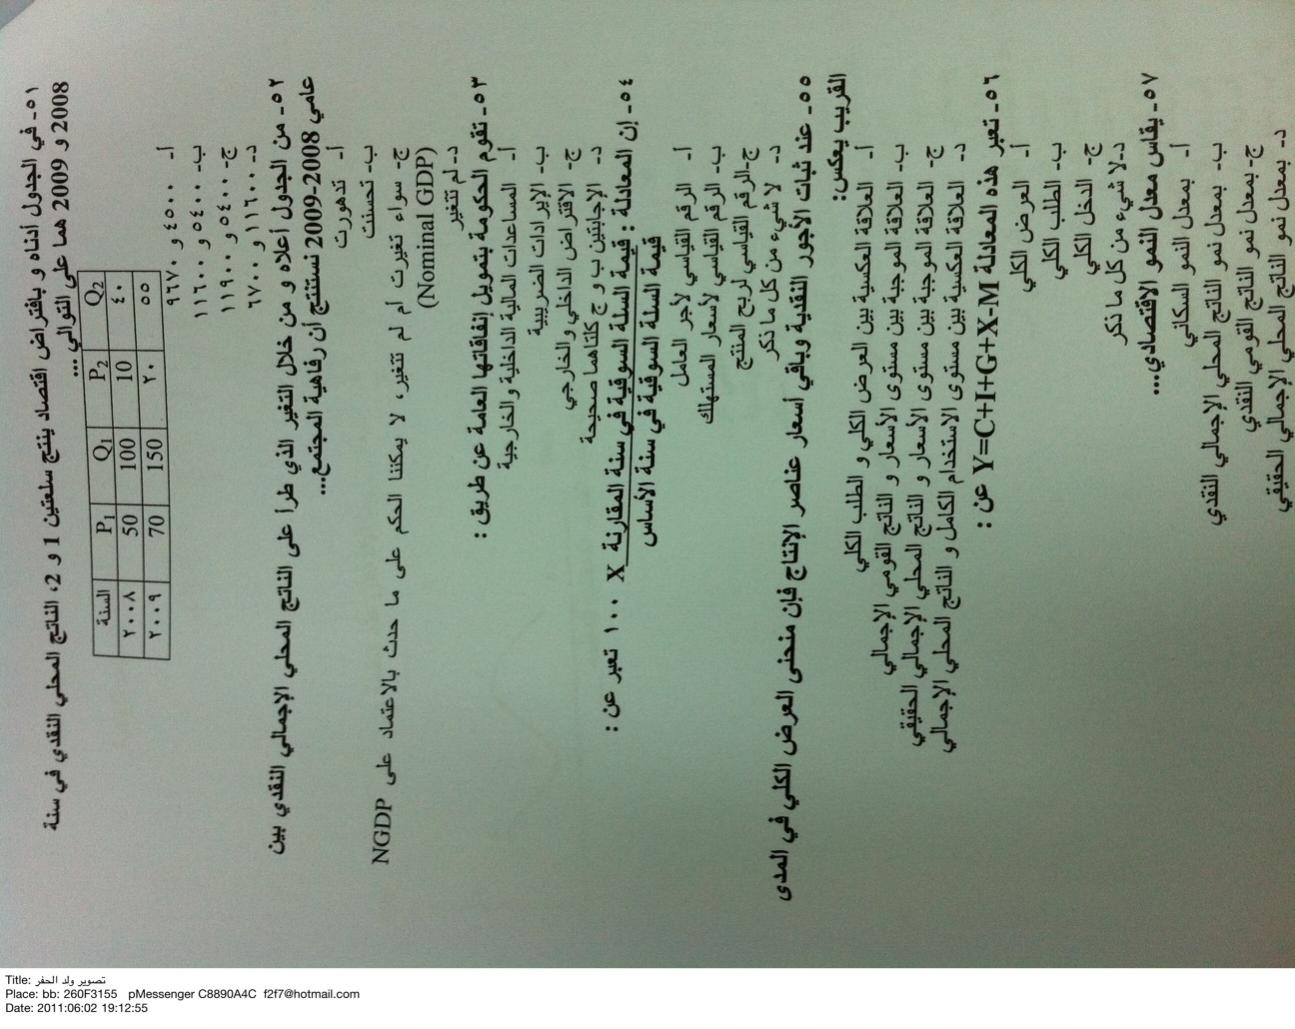 ٥١- في الجدول أدناه و بافتراض اقتصاد ينتج سلعتين 1 و 2، الناتج المحلي النقدي في سنة
2008 و 2009 هما على التوالي...
السنة P1 Q1 P2 Q2
٢٠٠٨ 50 100 10 ٤٠
٢٠٠٩ 70 150 ٢٠ ٥٥
أ- ٤٥٠٠ و ٩٦٧٠
ب- ٥٤٠٠ و ١١٦٠٠
ج- ٥٤٠٠ و ١١٩٠٠
د- ١١٦٠٠ و ٦٧٠٠
٥٢- من الجدول أعلاه و من خلال التغير الذي طرأ على الناتج المحلي الإجمالي النقدي بين
عامي 2008-2009 نستنتج أن رفاهية المجتمع...
أ- تدهورت
ب- تحسنت
ج- سواء تغيرت أم لم تتغير، لا يمكننا الحكم على ما حدث بالاعتماد على NGDP
(Nominal GDP)
د- لم تتغير
٥٣- تقوم الحكومة بتمويل إنفاقاتها العامة عن طريق :
أ- المساعدات المالية الداخلية والخارجية
ب- الإيرادات الضريبية
ج- الاقتراض الداخلي والخارجي
د- الإجابتين ب و ج كلتاهما صحيحة
٥٤- إن المعادلة : قيمة السلة السوقية في سنة المقارنة X ١٠٠ تعبر عن :
قيمة السلة السوقية في سنة الأساس
أ- الرقم القياسي لأجر العامل
ب- الرقم القياسي لأسعار المستهلك
ج-الرقم القياسي لربح المنتج
د- لا شيء من كل ما ذكر
٥٥- عند ثبات الأجور النقدية وباقي أسعار عناصر الإنتاج فإن منحنى العرض الكلي في المدى
القريب يعكس:
أ- العلاقة العكسية بين العرض الكلي و الطلب الكلي
ب- العلاقة الموجبة بين مستوى الأسعار و الناتج القومي الإجمالي
ج- العلاقة الموجبة بين مستوى الأسعار و الناتج المحلي الإجمالي الحقيقي
د- العلاقة العكسية بين مستوى الاستخدام الكامل و الناتج المحلي الإجمالي
٥٦- تعبر هذه المعادلة Y=C+I+G+X-M عن :
أ- العرض الكلي
ب- الطلب الكلي
ج- الدخل الكلي
د-لا شيء من كل ما ذكر
٥٧- يقاس معدل النمو الاقتصادي...
أ- بمعدل النمو السكاني
ب- بمعدل نمو الناتج المحلي الإجمالي النقدي
ج-بمعدل نمو الناتج القومي النقدي
د- بمعدل نمو الناتج المحلي الإجمالي الحقيقي
Title: تصوير ولد الحفر
Place: bb: 260F3155 pMessenger C8890A4C f2f7@hotmail.com
Date: 2011:06:02 19:12:55